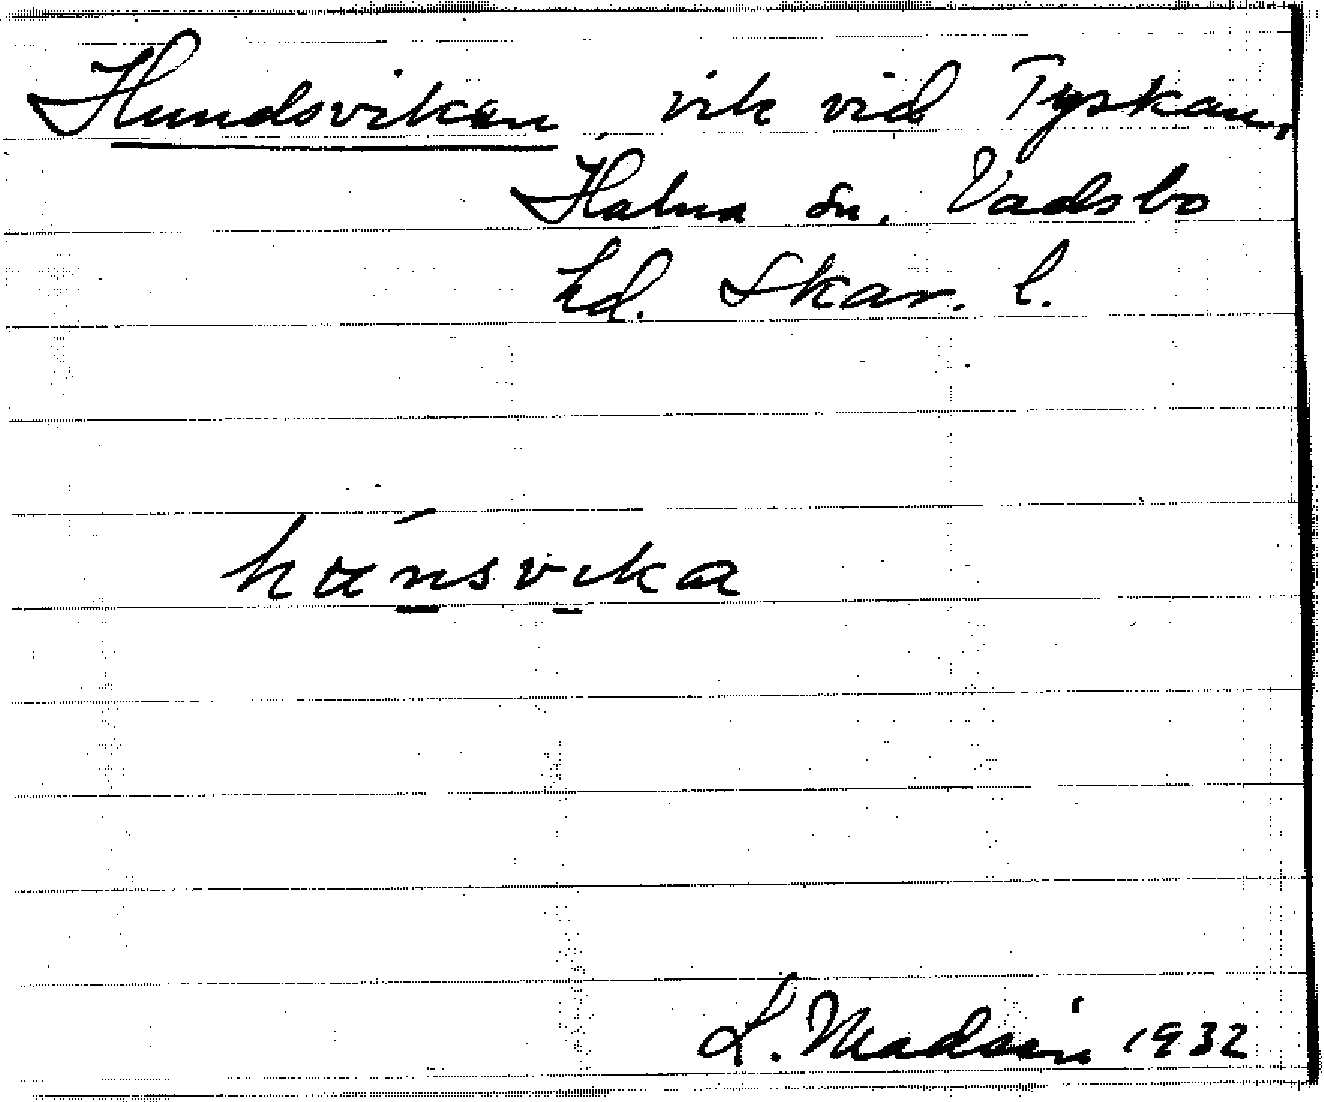 Hundsviken, vik vid Tyskan,
Halna sn. Vadsbo
hd. Skar. l.
L. Madsén 1932